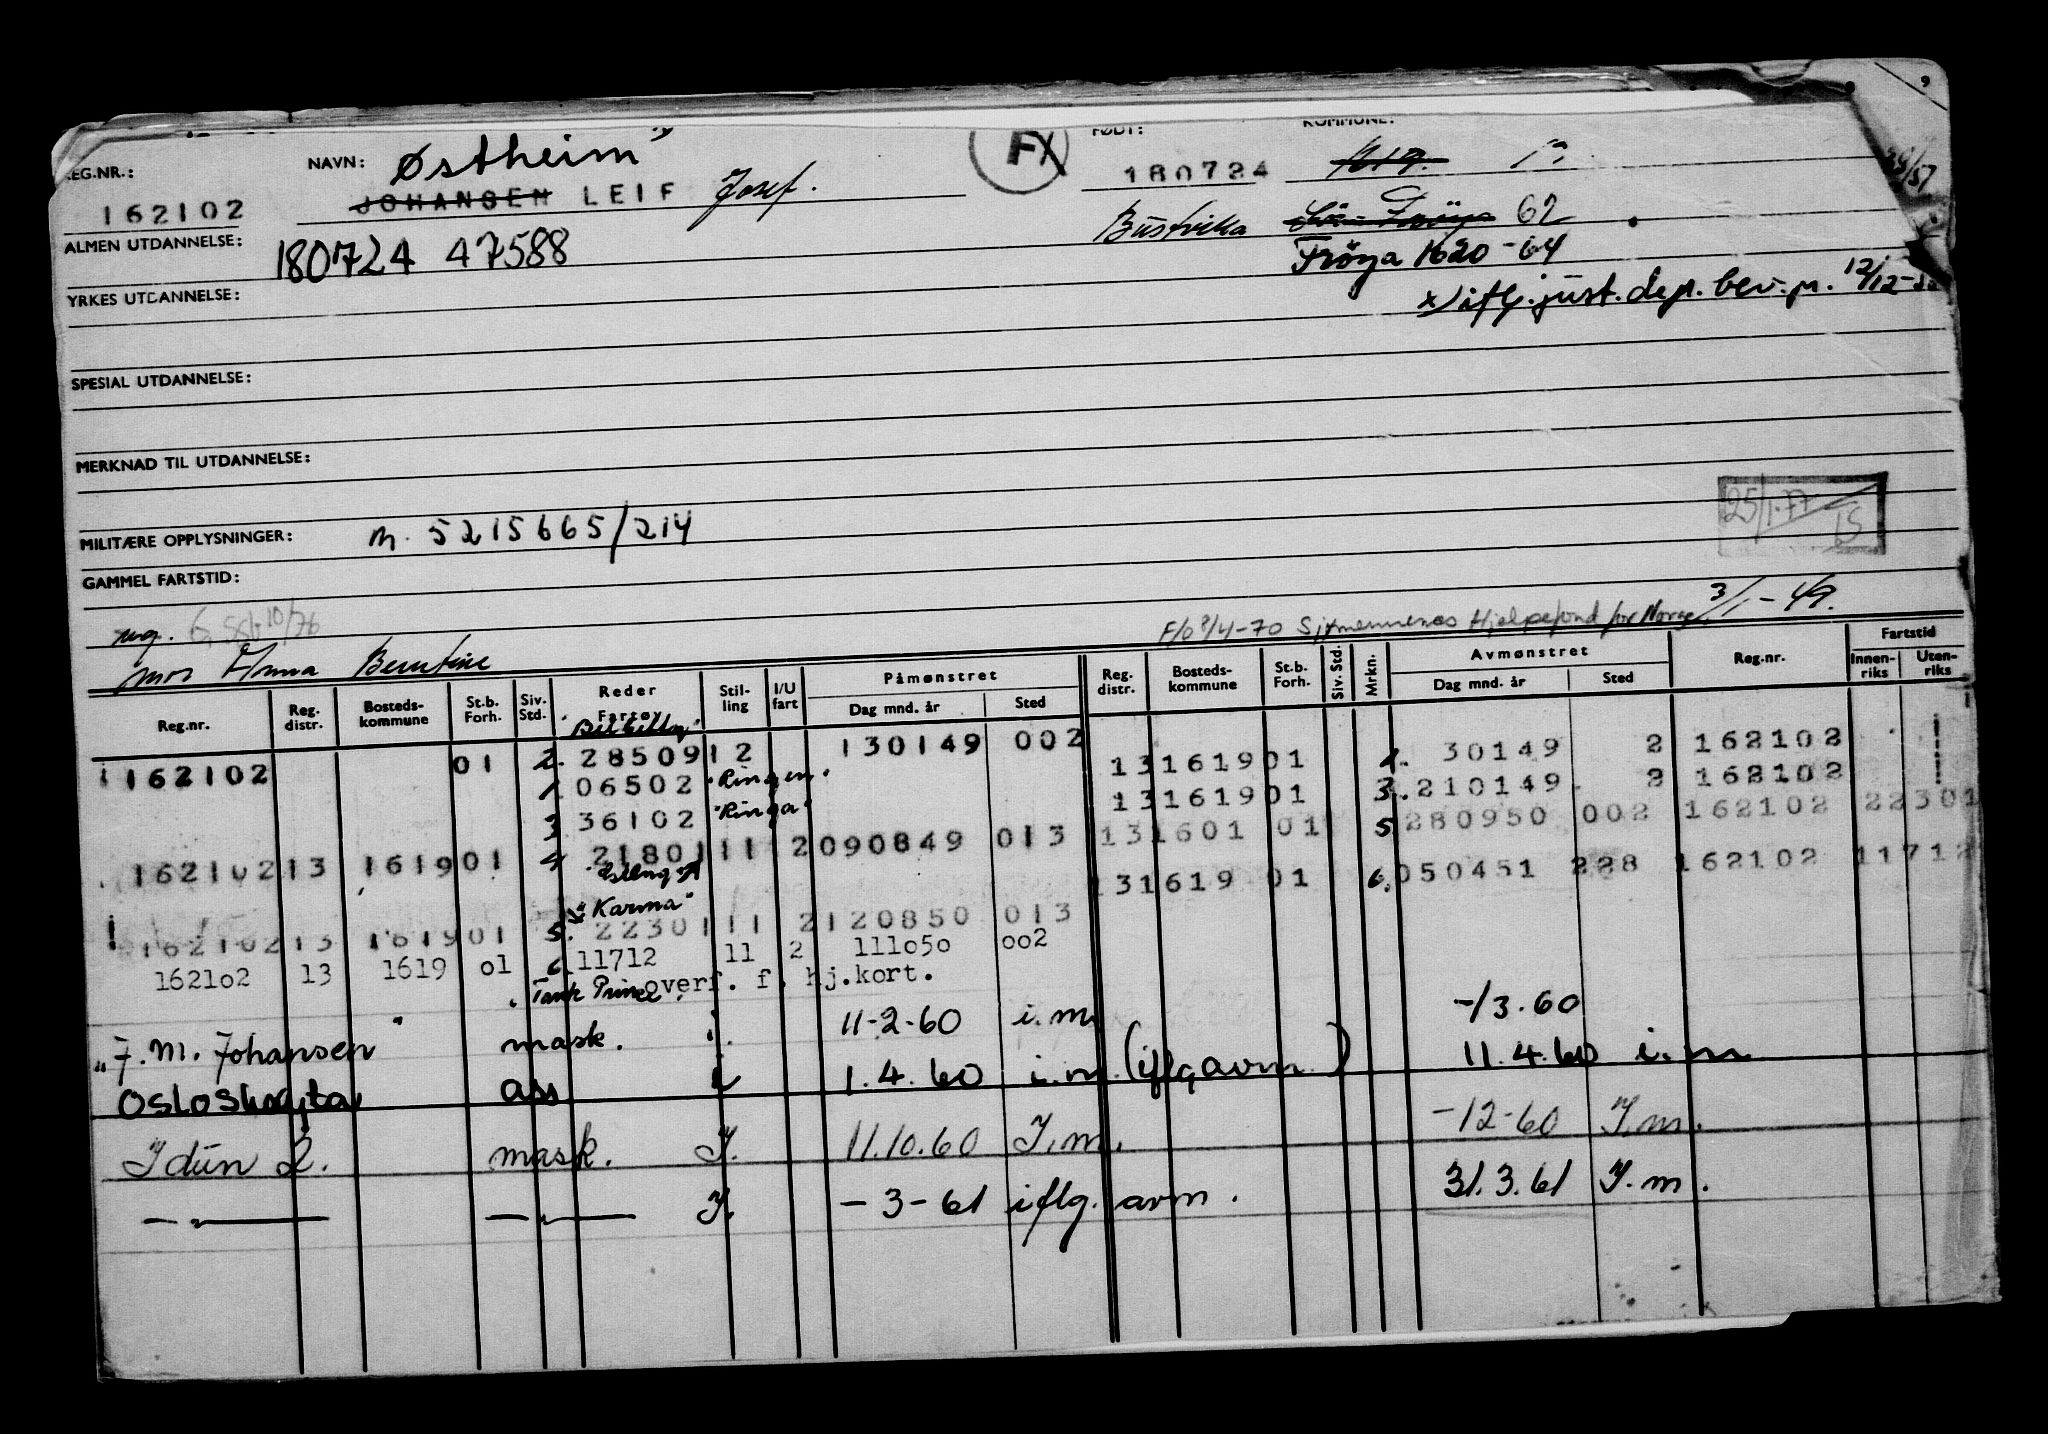 REG.NR.: NAVN: Østheim x) FX FØDT: KOMMUNE:
162102 JOHANSEN LEIF Josef. 180724
ALMEN UTDANNELSE: 180724 47588 Büstvika 62
Fröya 1620 - 64
YRKES UTDANNELSE: x) iflg. just. dep. bev. 12/12-
SPESIAL UTDANNELSE:
MERKNAD TIL UTDANNELSE:
25/1-77 IS
MILITÆRE OPPLYSNINGER: M. 5215665/214
GAMMEL FARTSTID:
ug. F/o 8/4-70 Sjømennenes Hjelpefond for Norge. 3/1-49.
mor Anna Berntine
Reg.nr. Reg. distr. Bosteds-kommune St.b. Forh. Siv. Std. Reder Fartøy Stil-ling I/U fart Påmønstret Dag mnd. år Sted Reg. distr. Bosteds-kommune St.b. Forh. Siv. Std. Mrkn. Avmønstret Dag mnd. år Sted Reg.nr. Fartstid Innen-riks Uten-riks
162102 01 2. 28509 12 130149 002 13 1619 01 1. 30149 2 162102
1 06502 "Ringen" 13 1619 01 3. 210149 2 162102
3 36102 "Ringa" 13 1601 01 5 280950 002 162102 22301
162102 13 1619 01 4 21801 11 2 090849 013 13 1619 01 6. 050451 228 162102 11712
"Karma"
162102 13 1619 01 5. 22301 11 2 120850 013
1621o2 13 1619 o1 6 11712 11 2 111o5o oo2
"Tank Prince" overf. f. hj.kort.
"J. M. Johansen mask. i. 11-2-60 i.m. -/3.60
Osloskøyta ass i 1.4.60 i.m. (iflg avm.) 11.4.60 i.m
Idun 2. mask. I. 11.10.60 I.m. -12-60 I.m.
— " — — " — I. - 3 - 61 iflg. avm. 31.3.61 I.m.